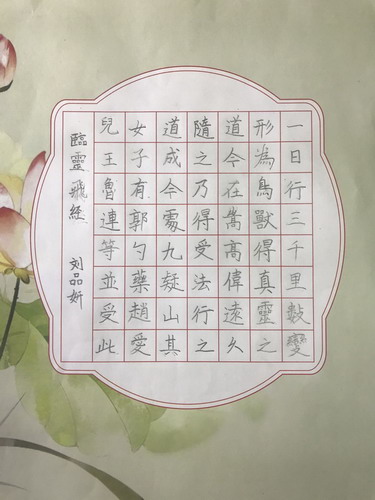 一日行三千里數變
形為鳥獸得真靈之
道今在嵩高偉遠久
隨之乃得受法行之
道成今處九疑山其
女子有郭勺藥趙愛
兒王魯連等並受此
臨靈飛經 刘品妍